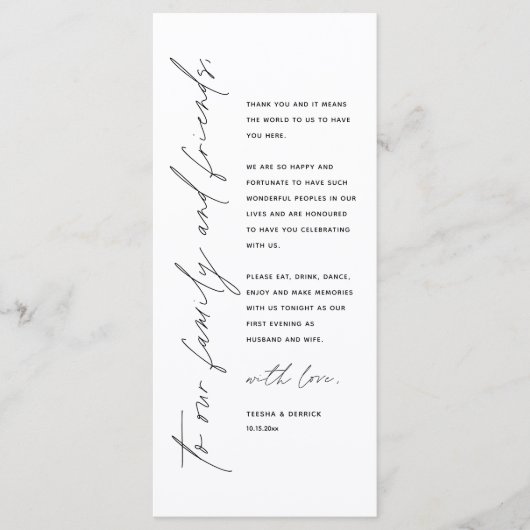 to our family and friends,
THANK YOU AND IT MEANS
THE WORLD TO US TO HAVE
YOU HERE.
WE ARE SO HAPPY AND
FORTUNATE TO HAVE SUCH
WONDERFUL PEOPLES IN OUR
LIVES AND ARE HONOURED
TO HAVE YOU CELEBRATING
WITH US.
PLEASE EAT, DRINK, DANCE,
ENJOY AND MAKE MEMORIES
WITH US TONIGHT AS OUR
FIRST EVENING AS
HUSBAND AND WIFE.
with love,
TEESHA & DERRICK
10.15.20xx